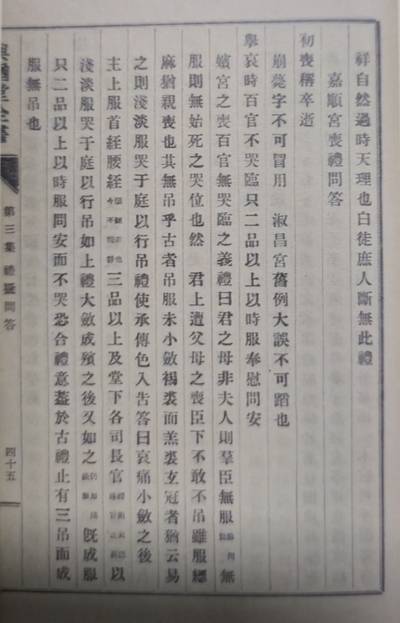 祥自然過時天理也白徒庶人斷無此禮
嘉順宮喪禮問答
初喪稱卒逝
崩薨字不可冒用 淑昌宮舊例大誤不可蹈也
擧哀時百官不哭臨只二品以上以時服奉慰問安
嬪宮之喪百官無哭臨之義禮曰君之母非夫人則羣臣無服 無
服則無始死之哭位也然 君上遭父母之喪臣下不敢不吊雖服緦
麻猶親喪也其無吊乎古者吊服未小斂裼裘而羔裘玄冠者猶云易
之則淺淡服哭于庭以行吊禮使承傳色入告答曰哀痛小斂之後
主上服首絰腰絰 三品以上及堂下各司長官 以
淺淡服哭于庭以行吊如上禮大斂成殯之後又如之 旣成服
只二品以上以時服問安而不哭恐合禮意蓋於古禮止有三吊而成
服無吊也
與猶堂全書
第三集 禮疑問答
四十五